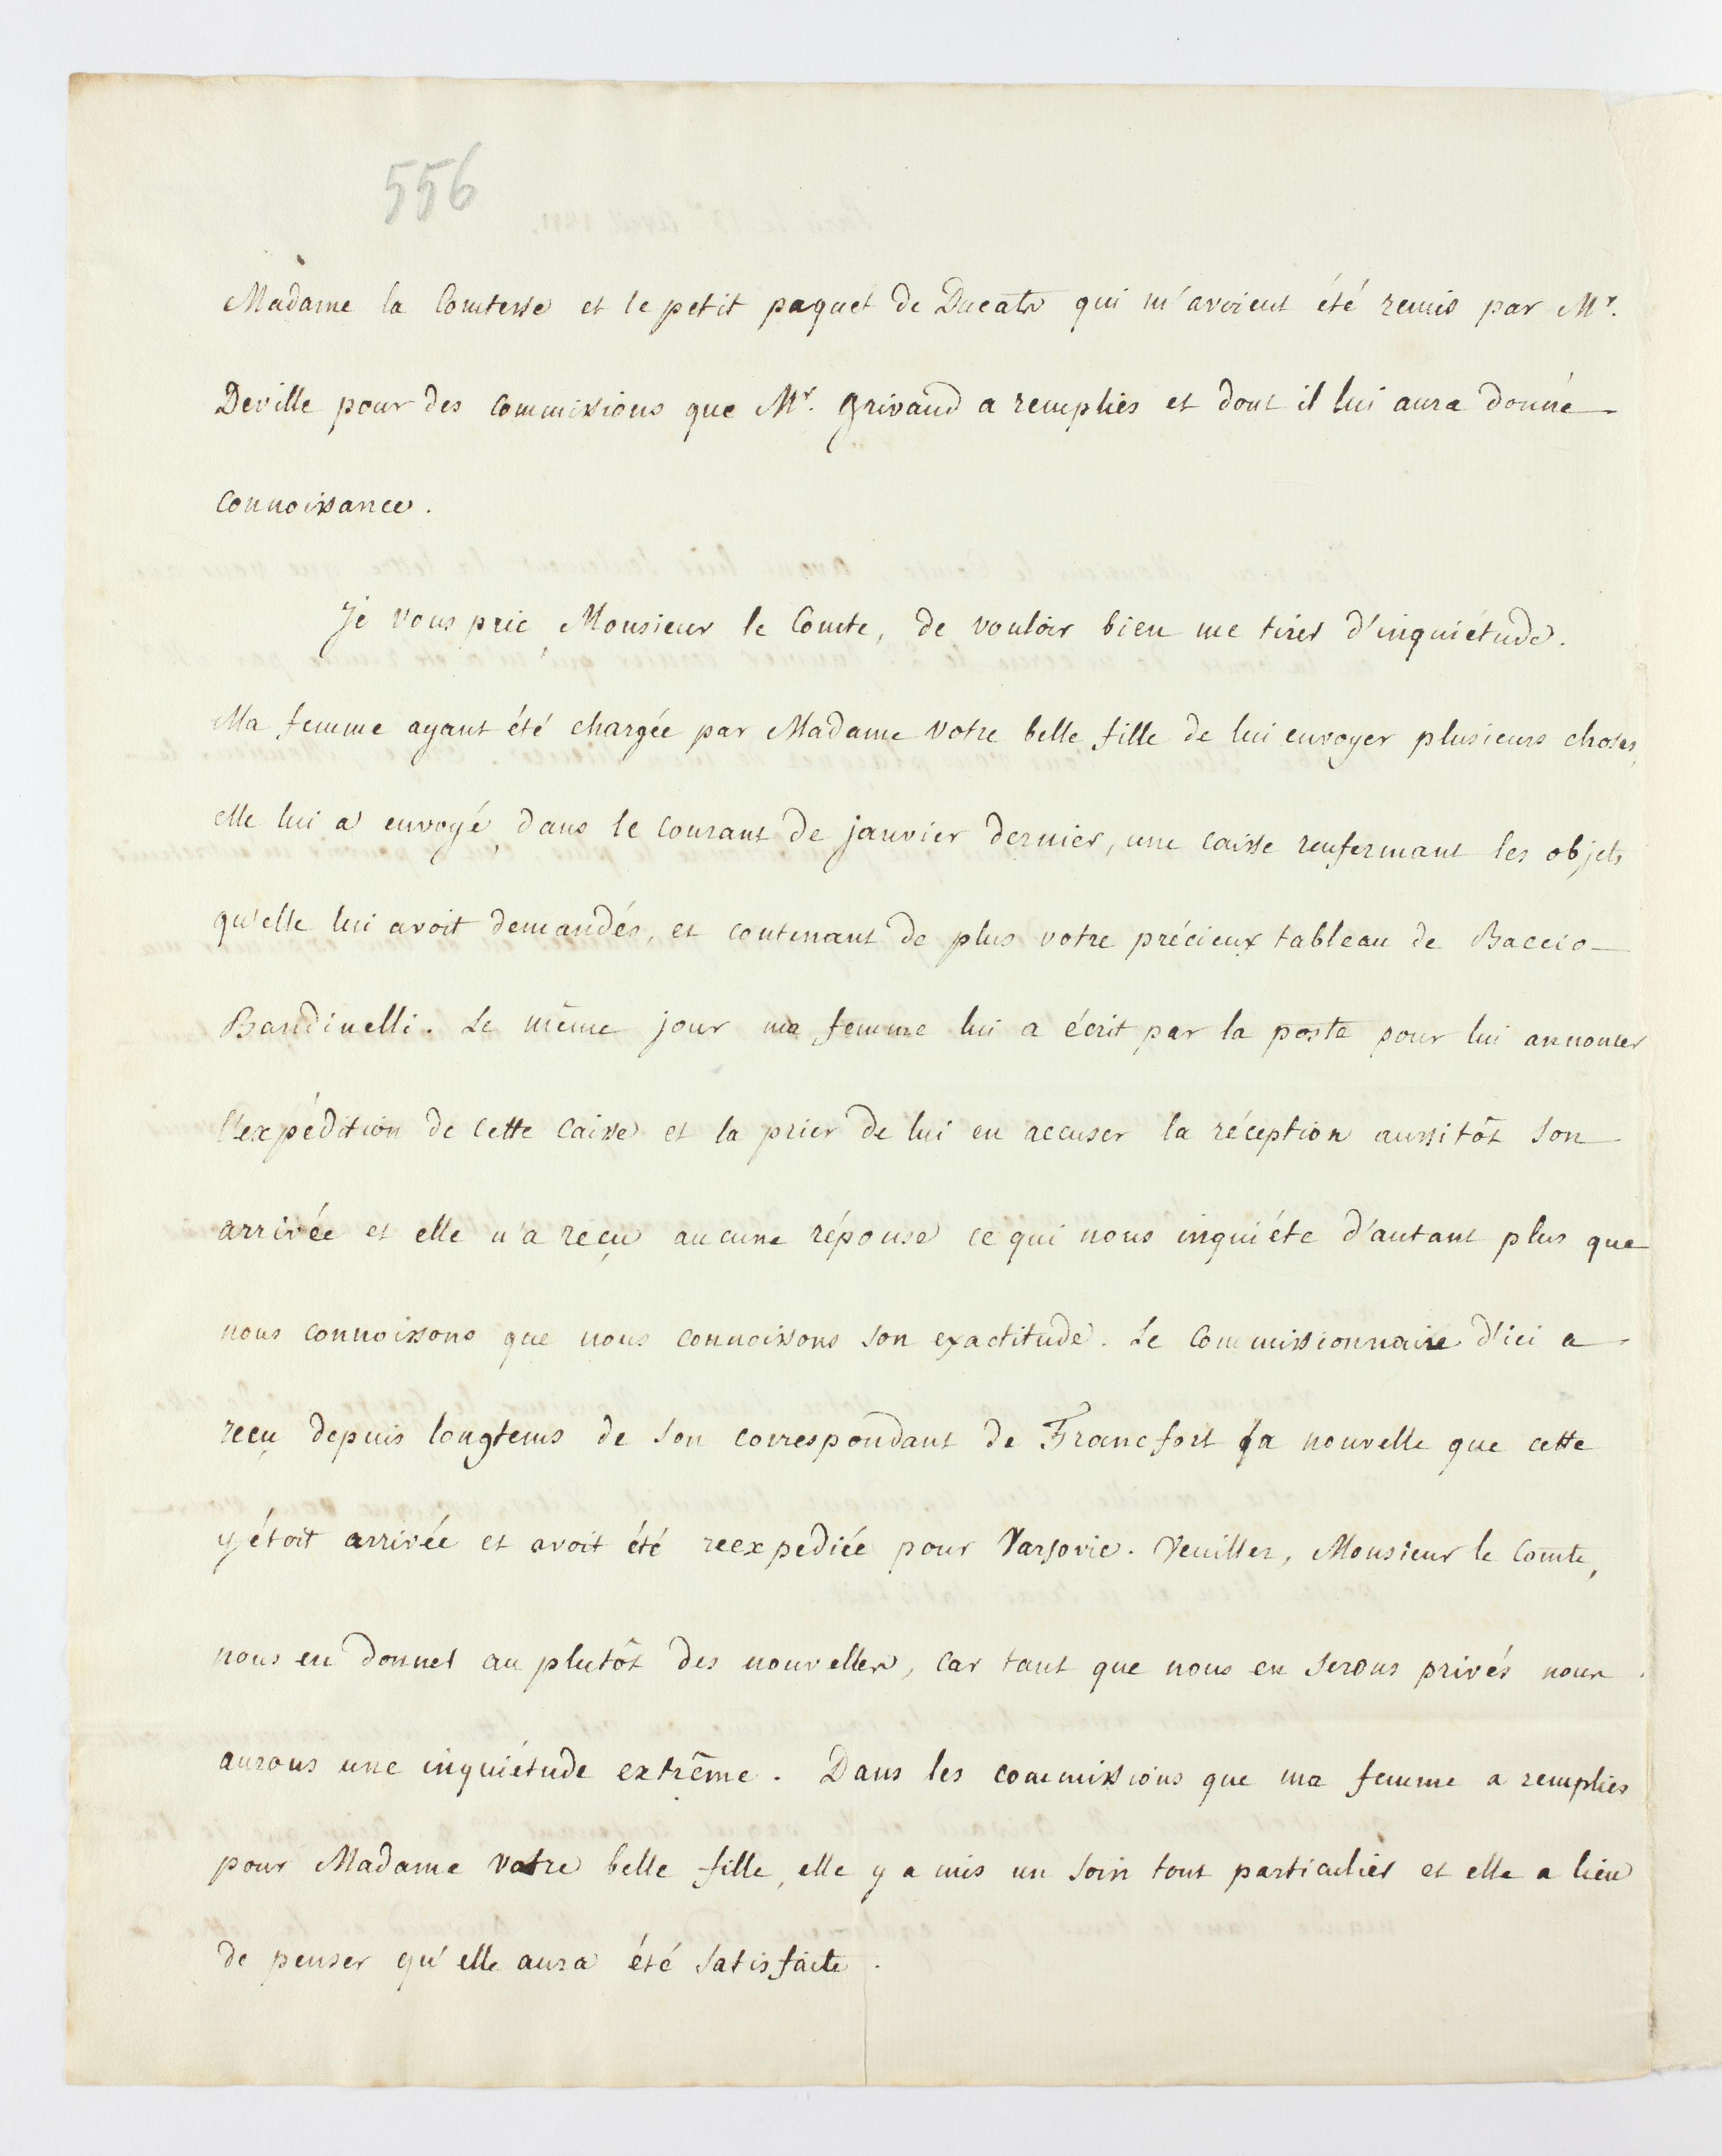 556
Madame la Comtesse et le petit paquet de Ducats qui m'avoient été remis par Mr.
Deville pour des commissions que Mr. Grivaud a remplies et dont il lui aura donné
connoissance.
Je vous prie, Monsieur le Comte, de vouloir bien me tirer d'inquiétude.
Ma femme ayant été chargée par Madame votre belle fille de lui envoyer plusieurs choses,
elle lui a envoyé, dans le courant de janvier dernier, une caisse renfermant les objets
qu'elle lui avoit demandés, et contenant de plus votre précieux tableau de Baccio
Bandinelli. Le même jour ma femme lui a écrit par la poste pour lui annoncer
l'expédition de cette caisse et la prier de lui en accuser la réception aussitôt son
arrivée et elle n'a reçu aucune réponse ce qui nous inquiéte d'autant plus que
nous connoissons que nous connoissons son exactitude. Le commissionnaire d'ici a
reçu depuis longtems de son correspondant de Francfort la nouvelle que cette
y étoit arrivée et avoit été reexpediée pour Varsovie. Veuillez, Monsieur le Comte,
nous en donner au plutôt des nouvelles, car tant que nous en serons privés nous
aurons une inquiétude extrême. Dans les commissions que ma femme a remplies
pour Madame votre belle fille, elle y a mis un soin tout particulier et elle a lieu
de penser qu'elle aura été satisfaite.